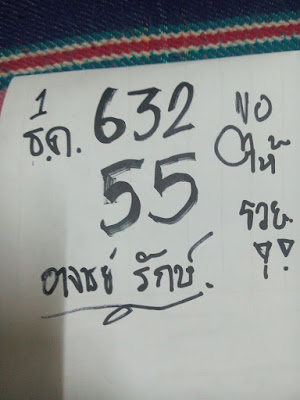 1 ธ.ค. 632
55
อาจารย์ รักษ์.
NO
ให้
รวย
!!